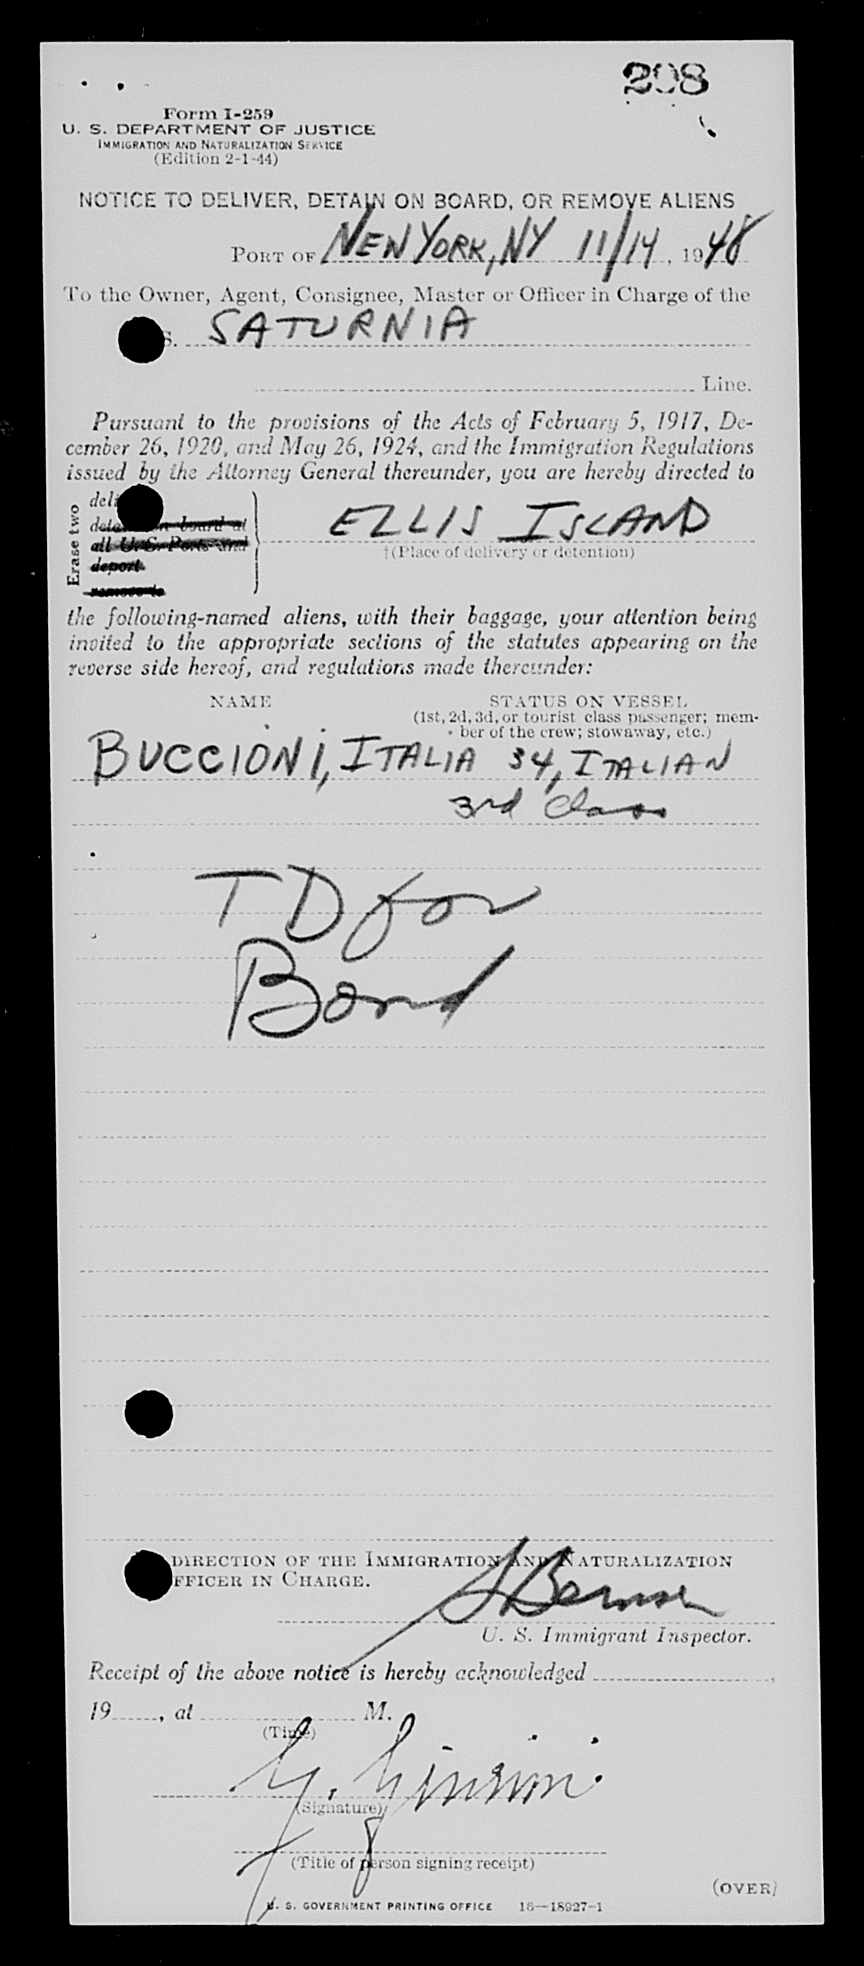 208
Form I-259
U. S. DEPARTMENT OF JUSTICE
IMMIGRATION AND NATURALIZATION SERVICE
(Edition 2-1-44)
NOTICE TO DELIVER, DETAIN ON BOARD, OR REMOVE ALIENS
PORT OF NEW YORK, NY 11/14, 1948
To the Owner, Agent, Consignee, Master or Officer in Charge of the
S. SATURNIA
Line.
Pursuant to the provisions of the Acts of February 5, 1917, De-
cember 26, 1920, and May 26, 1924, and the Immigration Regulations
issued by the Attorney General thereunder, you are hereby directed to
Erase two
deli
deta on board at
all U.S. Ports and
deport
remove to
ELLIS ISLAND
†(Place of delivery or detention)
the following-named aliens, with their baggage, your attention being
invited to the appropriate sections of the statutes appearing on the
reverse side hereof, and regulations made thereunder:
NAME STATUS ON VESSEL
(1st, 2d, 3d, or tourist class passenger; mem-
ber of the crew; stowaway, etc.)
BUCCIONI, ITALIA 34, ITALIAN
3rd Class
TD for
Bond
DIRECTION OF THE IMMIGRATION AND NATURALIZATION
FFICER IN CHARGE.
U. S. Immigrant Inspector.
Receipt of the above notice is hereby acknowledged
19 , at M.
(Time)
(Signature)
(Title of person signing receipt)
(OVER)
U. S. GOVERNMENT PRINTING OFFICE 16—18927-1